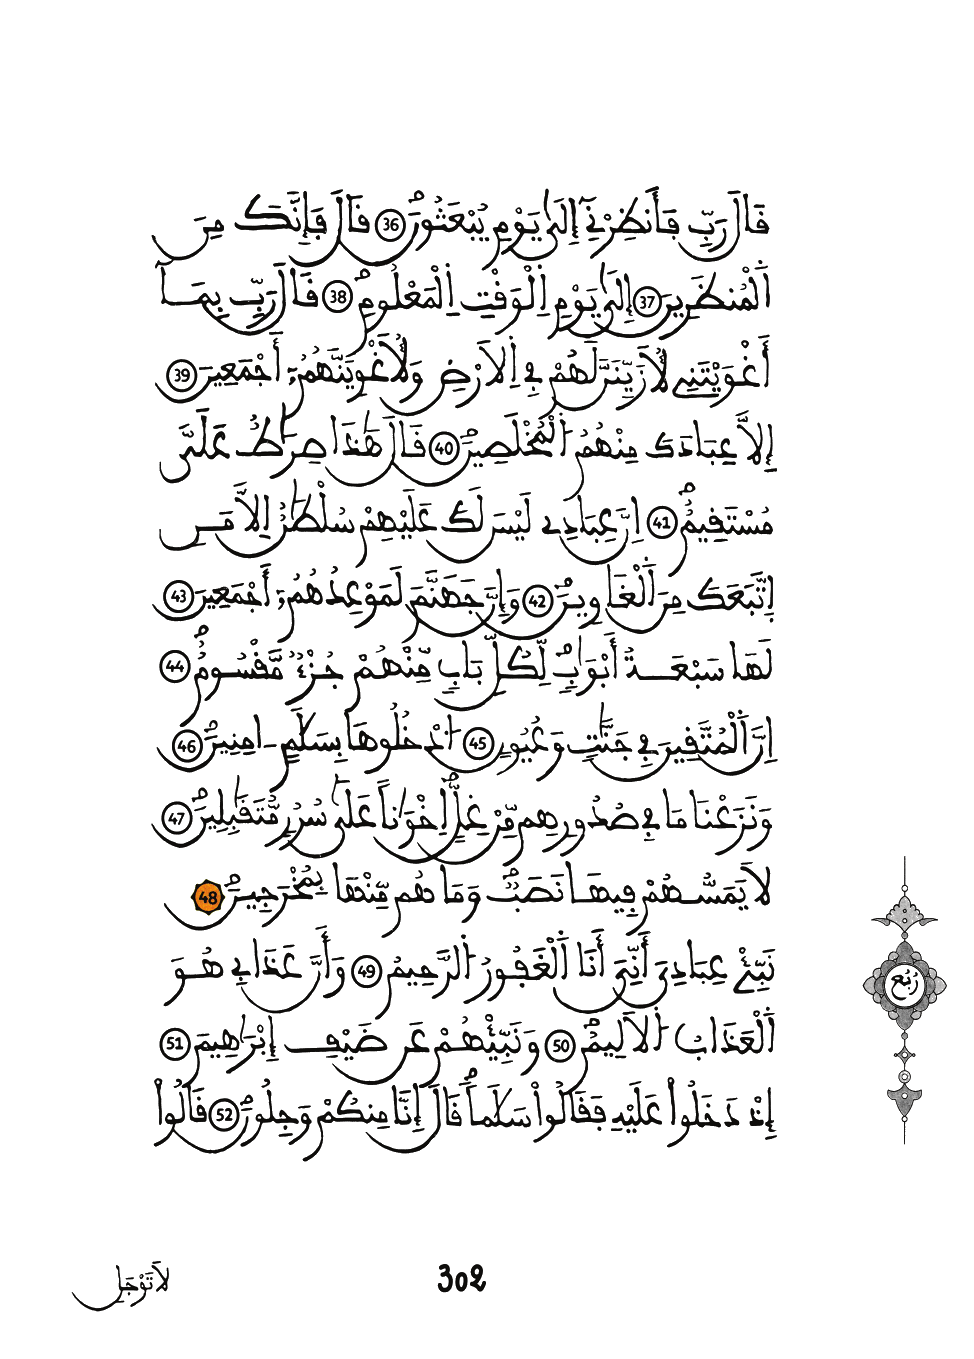 قَالَ رَبِّ فَأَنظِرْنِےٓ إِلَىٰ يَوْمِ يُبْعَثُونَۖ 36 قَالَ فَإِنَّكَ مِنَ
اَ۬لْمُنظَرِينَ 37 إِلَىٰ يَوْمِ اِ۬لْوَقْتِ اِ۬لْمَعْلُومِۖ 38 قَالَ رَبِّ بِمَآ
أَغْوَيْتَنِے لَأُزَيِّنَنَّ لَهُمْ فِے اِ۬لَارْضِ وَلَأُغْوِيَنَّهُمُۥٓ أَجْمَعِينَ 39
إِلَّا عِبَادَكَ مِنْهُمُ اُ۬لْمُخْلَصِينَۖ 40 قَالَ هَٰذَا صِرَٰطٌ عَلَيَّ
مُسْتَقِيمٌۖ 41 إِنَّ عِبَادِے لَيْسَ لَكَ عَلَيْهِمْ سُلْطَٰنٌ اِلَّا مَنِ
اِ۪تَّبَعَكَ مِنَ اَ۬لْغَاوِينَۖ 42 وَإِنَّ جَهَنَّمَ لَمَوْعِدُهُمُۥٓ أَجْمَعِينَ 43
لَهَا سَبْعَةُ أَبْوَٰبٖۖ لِّكُلِّ بَابٖ مِّنْهُمْ جُزْءٞ مَّقْسُومٌۖ 44
اِنَّ اَ۬لْمُتَّقِينَ فِے جَنَّٰتٖ وَعُيُونٍ 45 اُ۟دْخُلُوهَا بِسَلَٰمٍ ـ امِنِينَۖ 46
وَنَزَعْنَا مَا فِے صُدُورِهِم مِّنْ غِلٍّۖ اِخْوَٰناً عَلَىٰ سُرُرٖ مُّتَقَٰبِلِينَۖ 47
لَا يَمَسُّهُمْ فِيهَا نَصَبٞۖ وَمَا هُم مِّنْهَا بِمُخْرَجِينَۖ 48
نَبِّۓْ عِبَادِيَ أَنِّيَ أَنَا اَ۬لْغَفُورُ اُ۬لرَّحِيمُ 49 وَأَنَّ عَذَابِے هُوَ
اَ۬لْعَذَابُ اُ۬لَالِيمُۖ 50 وَنَبِّئْهُمْ عَن ضَيْفِ إِبْرَٰهِيمَ 51
إِذْ دَخَلُواْ عَلَيْهِ فَقَالُواْ سَلَٰماٗۖ قَالَ إِنَّا مِنكُمْ وَجِلُونَۖ 52 قَالُواْ
رُبُع
لَا تَوْجَلِ
302